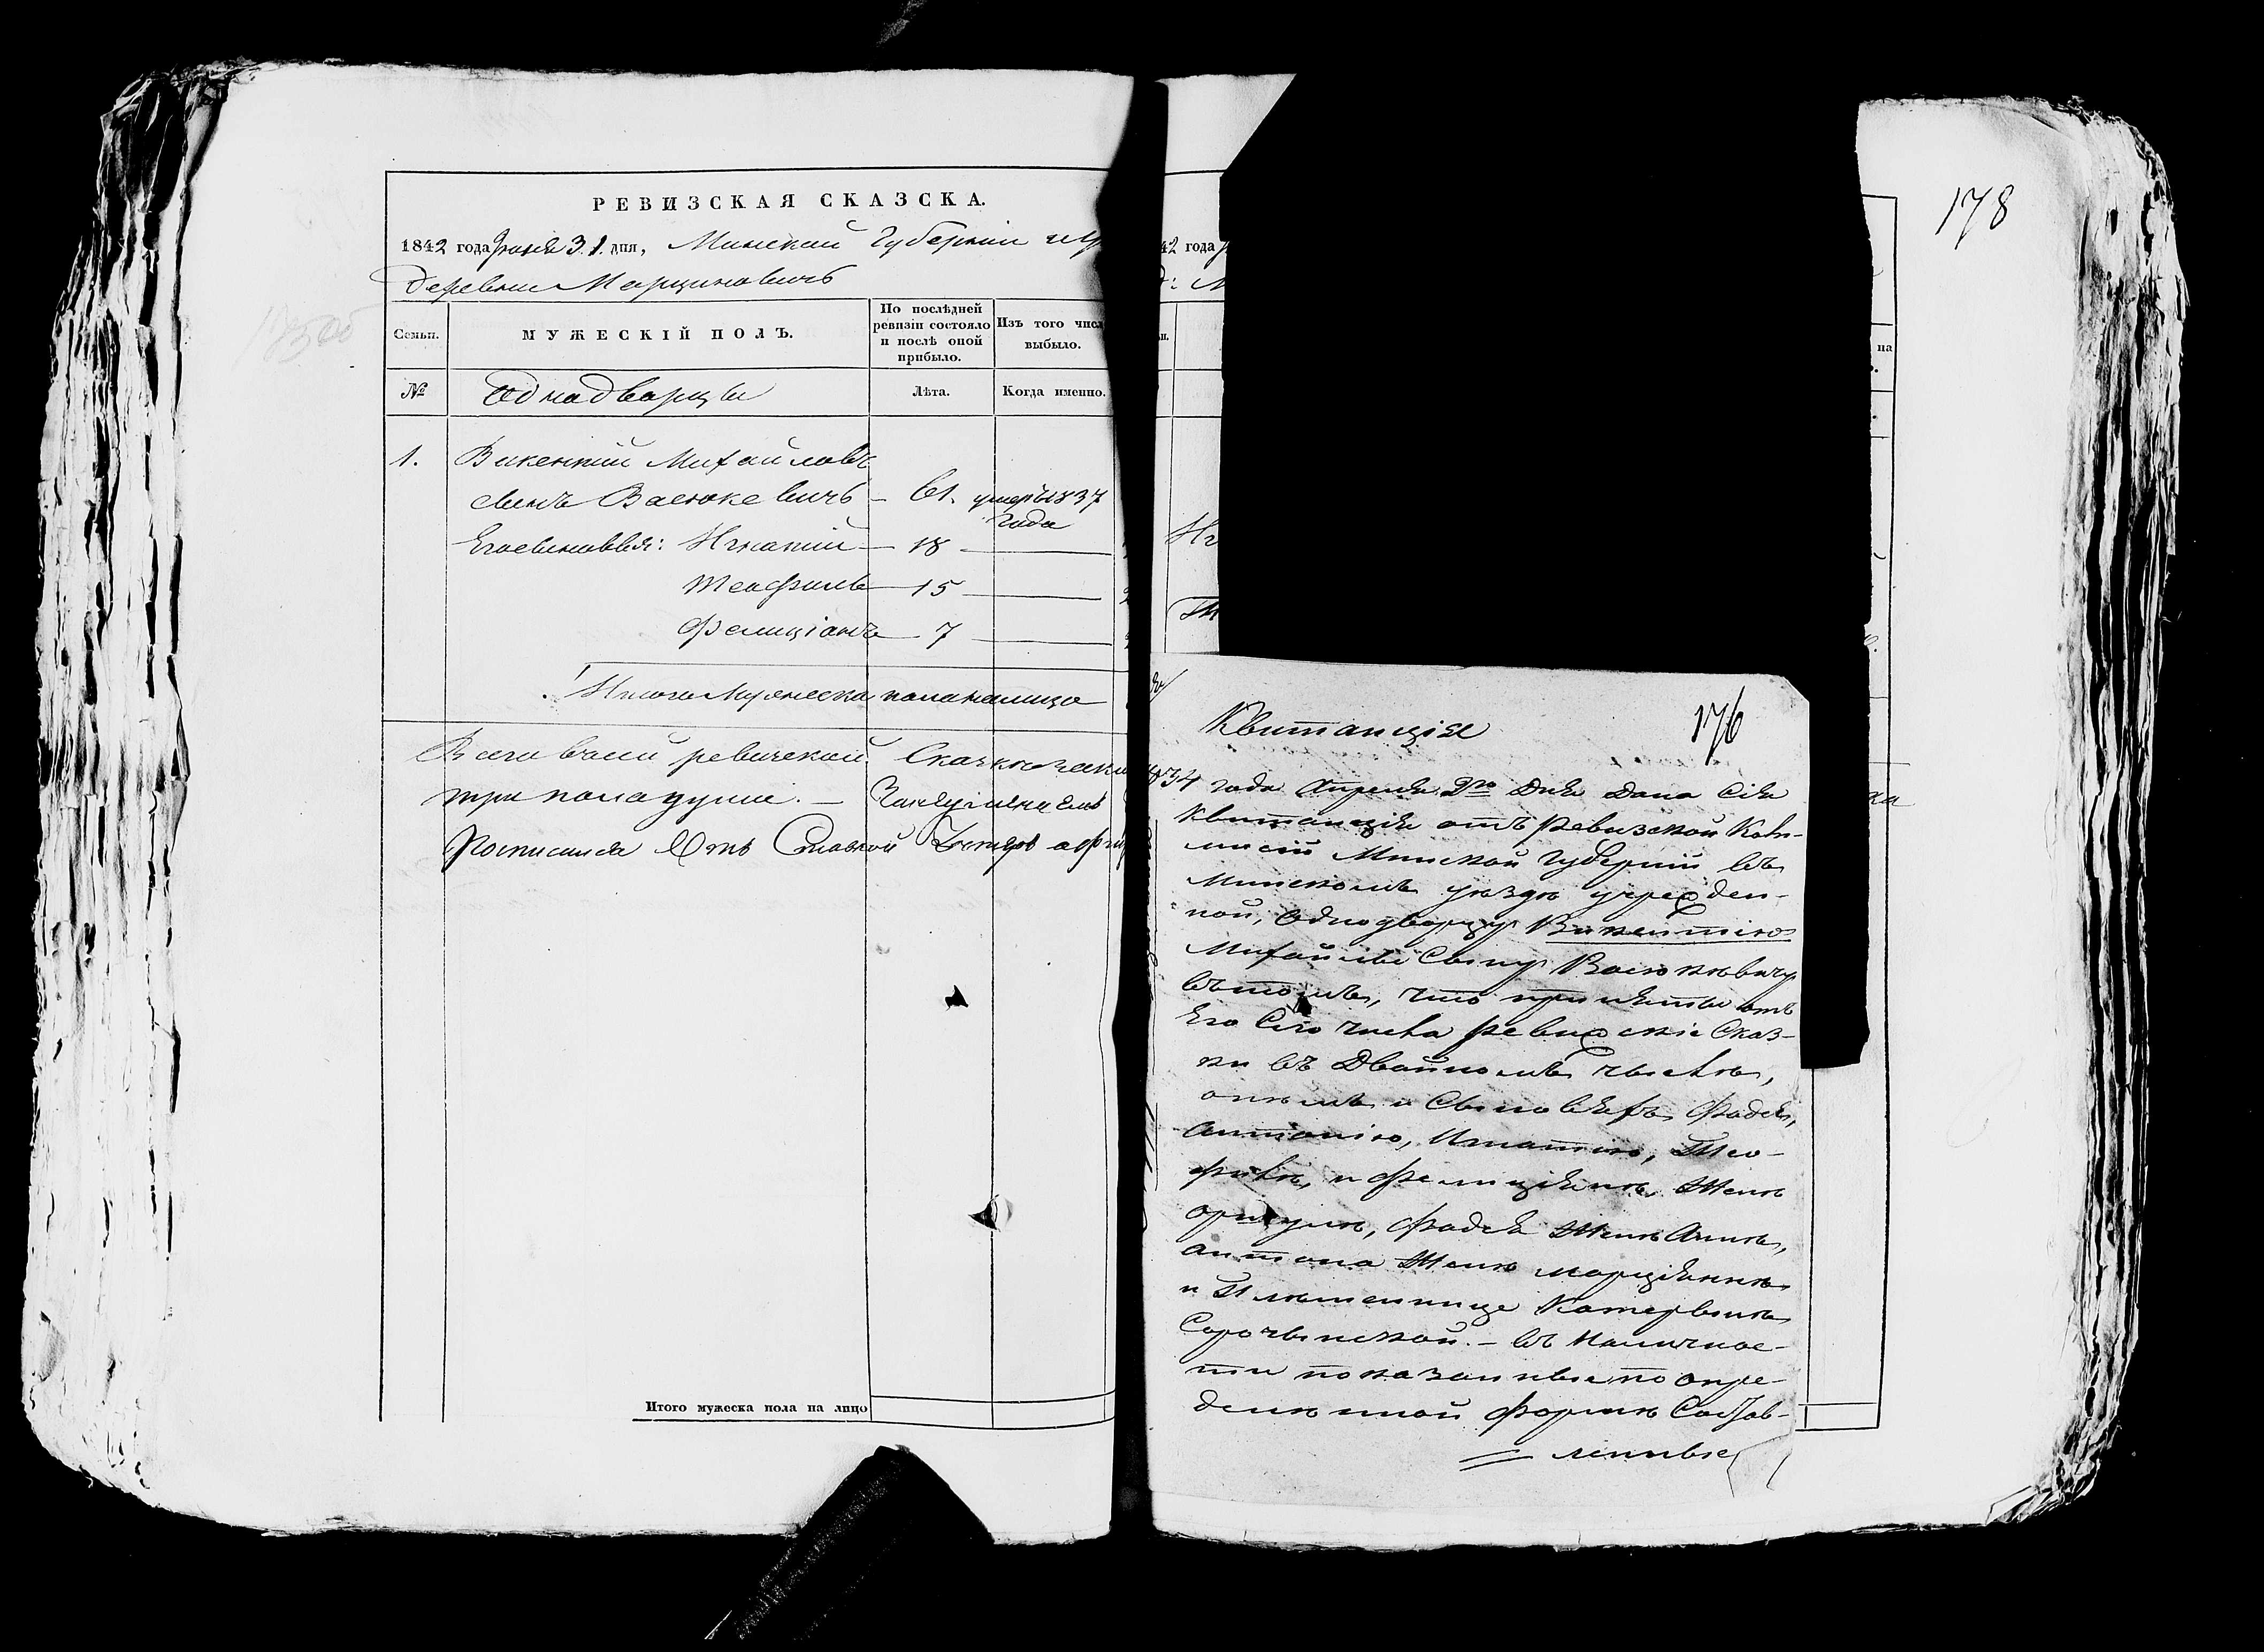 РЕВИЗСКАЯ СКАЗСКА.
1842 года 31. дня, Минской Губернии
деревни Марциновичъ
Семьи.
МУЖЕСКІЙ ПОЛЪ.
По послѣдней ревизіи состояло и послѣ оной прибыло.
Изъ того числ выбыло.
№
Однадворцы
Лѣта.
Когда именно.
1. Викентий Михайловъ
сынъ Васюкевичъ – 61. умеръ 1837 года
Егосыновья: Игнатий – 18
Теофиль 15
Фелиціанъ 7
Итого Мужеска пола налицо
Всего въсей ревизской Сказки
три пола души. –
Росписался
Итого мужеска пола на лицо
42 года
Иг
на
178
Квитанція
176
1834 года Апреля 9го Дня Дана Сія
Квитанція отъ Ревизской Ком-
мисіи Минской Губерніи въ
Минскомъ уѣздѣ учрежден-
ной, Однодворцу Викентію
Михайлы Сыну Васюкѣвичу
въ томъ, что приняты отъ
Его Сего числа Ревижскіе Сказ-
ки въ Двойномъ числѣ,
о немъ и Сыновяхъ Фадея,
Антонію, Игнатію, Тео-
филѣ, и Фелиціянѣ, Женѣ
Оршулѣ, Фадея Женѣ Аннѣ,
Антона Женѣ Марціяннѣ
и Племеннице Катерынѣ
Сорочынской. – въ Наличнос-
ти показанные по опре-
делѣнной формѣ Состав-
ленные